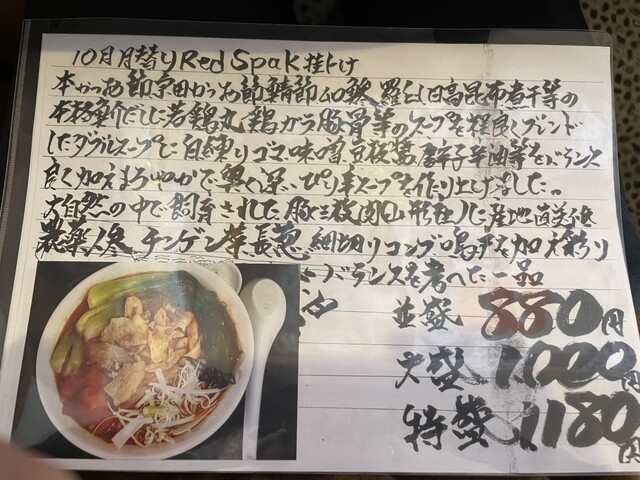 10月月替りRed Spak 担々
本かつお節宗田かつお節鯖節 羅臼日高昆布煮干等の
本格魚介だしに若鶏丸鶏ガラ豚骨等のスープを程良くブレンド
したダブルスープに自練りゴマ味噌豆板醤唐辛子辛油等をバランス
良く加えまろやかで奥へ深いぴり辛スープを作り上げました。
大自然の中で飼育された豚 肉(山形住)に産地直送
農楽 チンゲン菜 長葱 細切り を加え彩り
バランスを考えた一品
並盛 880円
大盛 1,000円
特盛 1180円